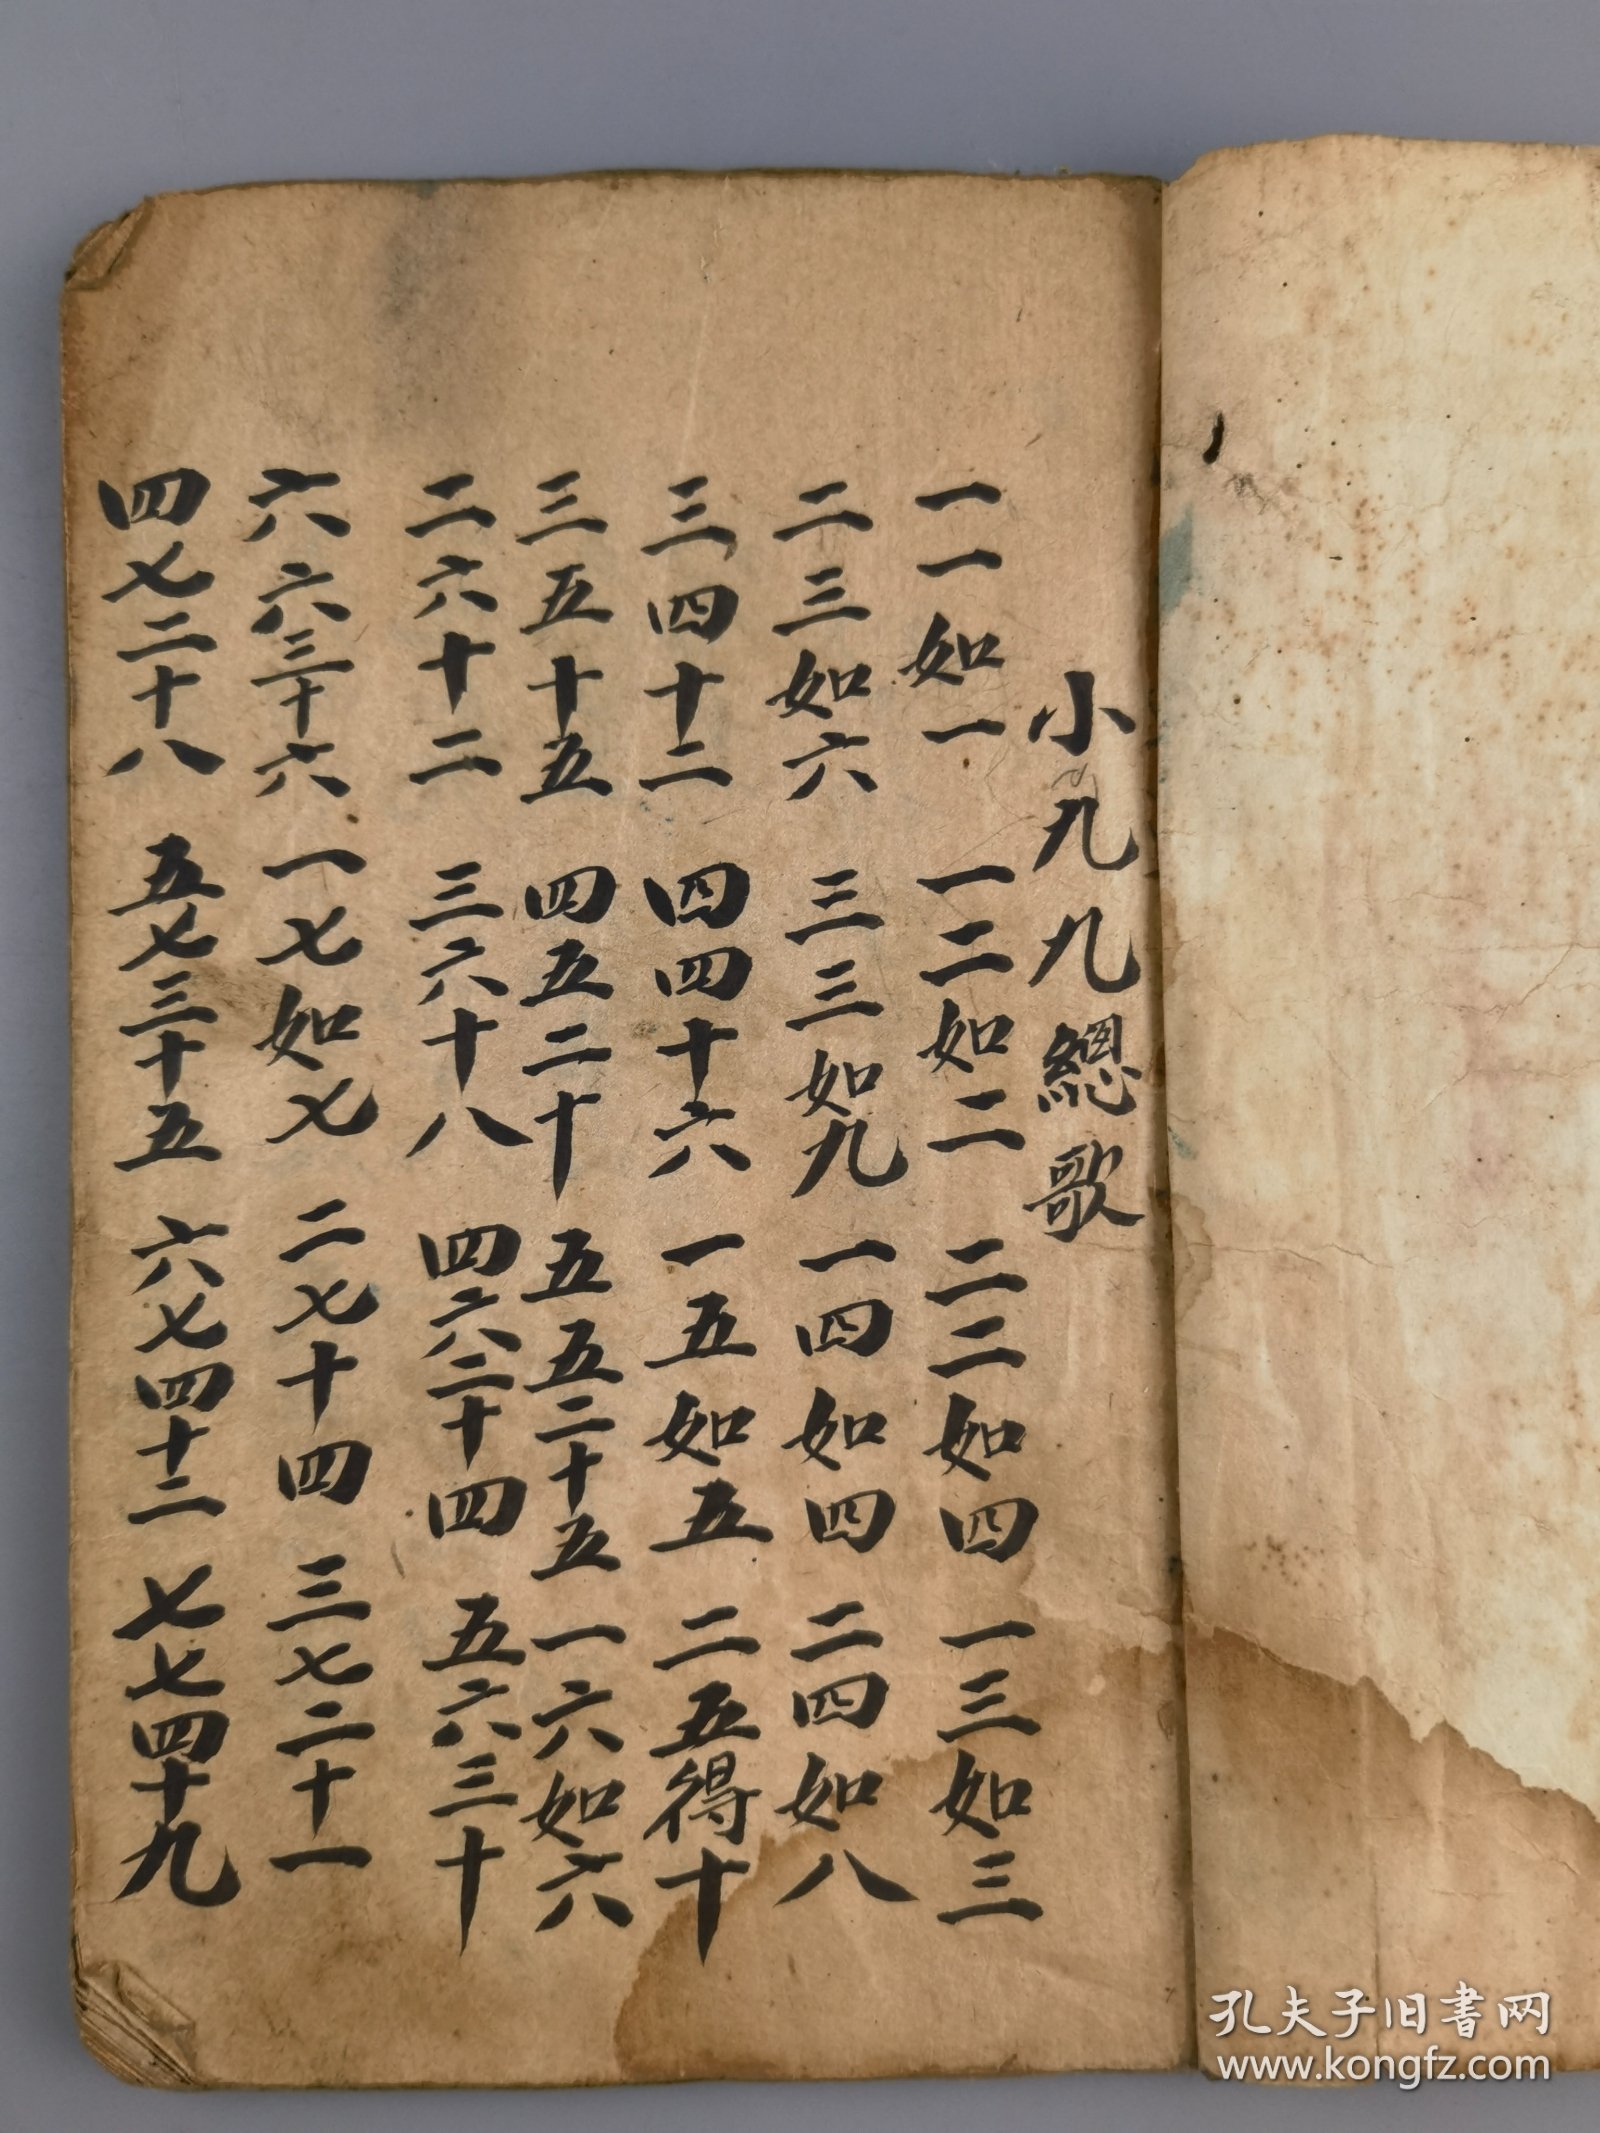 小九九總歌
一一如一 一二如二 二二如四 一三如三
二三如六 三三如九 一四如四 二四如八
三四十二 四四十六 一五如五 二五得十
三五十五 四五二十 五五二十五 一六如六
二六十二 三六十八 四六二十四 五六三十
六六三十六 一七如七 二七十四 三七二十一
四七二十八 五七三十五 六七四十二 七七四十九
孔夫子旧書网
www.kongfz.com